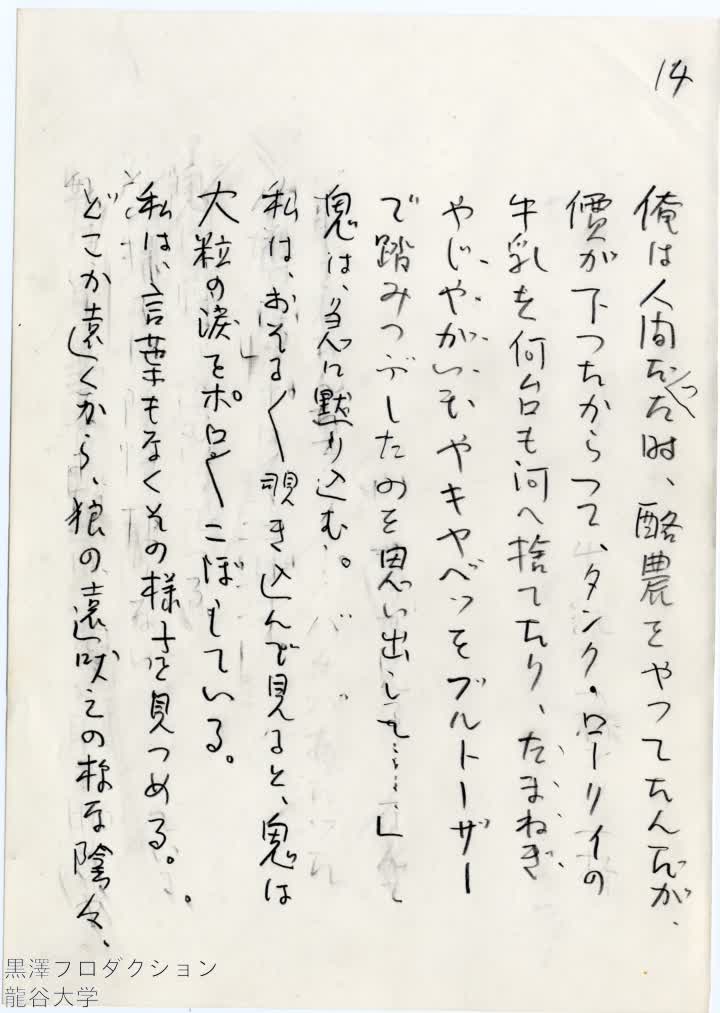 14
俺は人間だった時、酪農をやつてたんだが、
價が下つたからつて、タンク・ローリイの
牛乳を何台も河へ捨てたり、たまねぎ
やじやがいもやキヤベツをブルトーザー
で踏みつぶしたのを思い出して……」
鬼は、急に黙り込む。
私は、おそる〳〵覗き込んで見ると、鬼は
大粒の涙をポロ〳〵こぼしている。
私は、言葉もなくその様子を見つめる。
どこか遠くから、狼の遠吠えの様な陰々、
黒澤プロダクション
龍谷大学